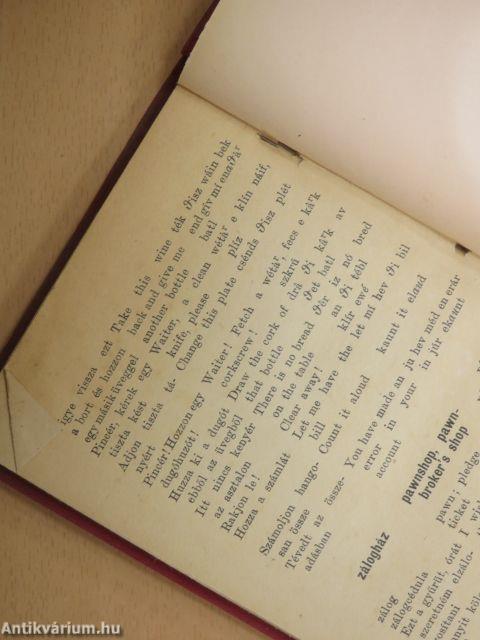 igye vissza ezt Take this wine ték ϑisz wáin bek
a bort és hozzon back and give me end gív mí enaϑär
egy másik üveggel another bottle batl
Pincér, kérek egy Waiter, a clean wétär e klín náif,
tiszta kést knife, please plíz
Adjon tiszta tá- Change this plate csénds ϑisz plét
nyért
Pincér! Hozzon egy Waiter! Fetch a wétär, fecs e kárk
dugóhuzót! corkscrew! szkrú
Huzza ki a dugót Draw the cork of drá ϑi kárk av
ebből az üvegből that bottle ϑet batl
Itt nincs kenyér There is no bread ϑèr iz nó bred
az asztalon on the table an ϑi tébl
Rakjon le! Clear away! klír ewé
Hozza a számlát Let me have the let mí hev ϑi bil
bill
Számoljon hango- Count it aloud kannt it elaud
san össze
Tévedt az össze- You have made an ju hev méd en erár
adásban error in your in júr ekaunt
account
zálogház pawnshop, pawn-
broker's shop
zálog pawn; pledge
zálogcédula ticket
Ezt a gyűrűt, órát I
szeretném elzálo-
Antikvárium.hu